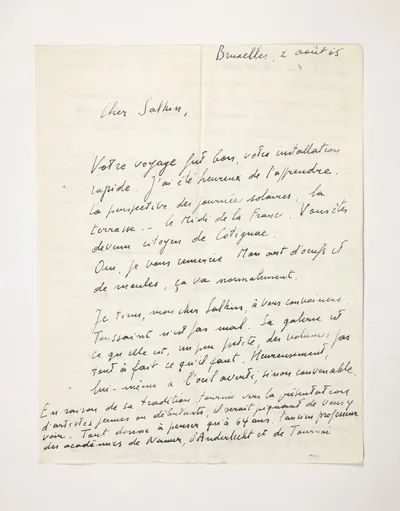 Bruxelles, 2 août 65
Cher Salkin,
Votre voyage fut bon, votre installation
rapide. J'ai été heureux de l'apprendre.
La perspective des journées solaires, la
terrasse -- le Midi de la France. Vous êtes
devenu citoyen de Cotignac.
Oui, je vous remercie. Mon art d'oeufs et
de moules, ça va normalement.
Je tiens, mon cher Salkin, à vous convaincre.
Toussaint n'est pas mal. Sa galerie est
ce qu'elle est, un peu petite, des volumes pas
tout à fait ce qu'il faut. Heureusement,
lui-même a l'oeil averti, sinon convenable.
En raison de sa tradition tournée vers la présentation
d'artistes jeunes ou débutants, il serait piquant de vous y
voir. - Tout donne à penser qu'à 64 ans, l'ancien professeur
des académies de Namur, d'Anderlecht et de Tournai